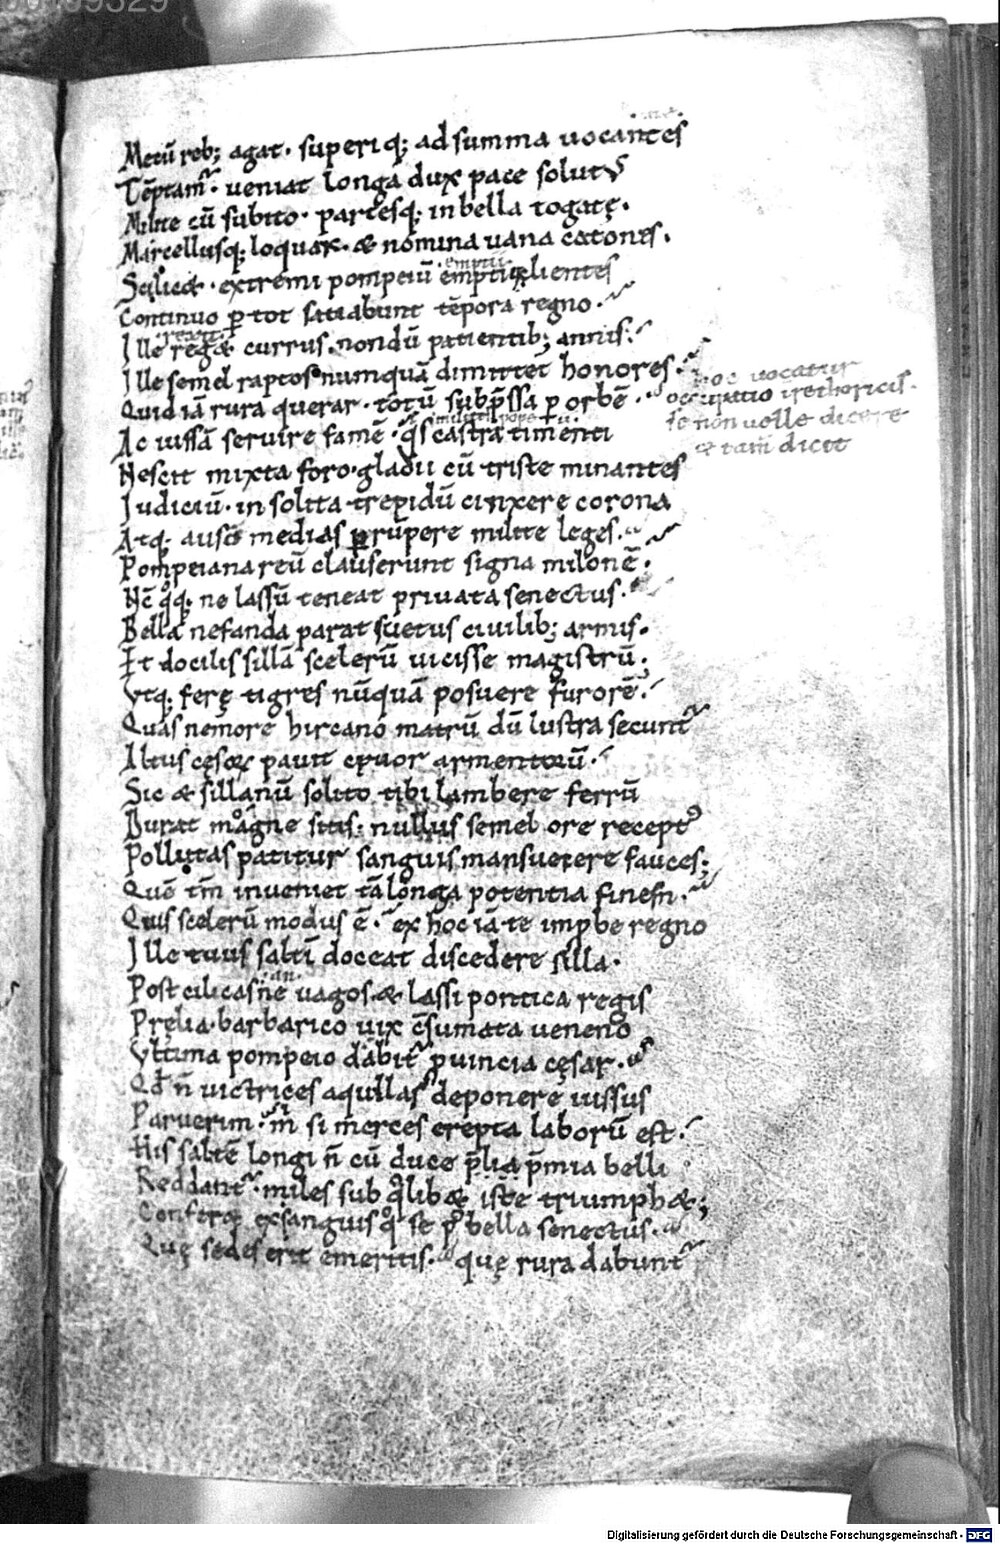 Mecū reb; agat. superiq; ad summa uocantes
Tēptam̄. ueniat longa dux pace solutus
Milite cū subito. partesq; in bella togatę.
Marcellusq; loquax. & nomina uana catones.
Scilic&. extremi pompeiū emptiq; clientes
Continuo p tot satiabunt tēpora regno.
Ille reg& currus. nondū patientib; annis.
Ille semel raptos numquā dimittet honores.
hoc vocatur
Quid iā rura querar. totū subp̄ssa p orbē.
occupatio
Ac iussā seruire famē. q̄s castra timenti
se non uolle dicere
& tam̄ dicit
Nescit mixta foro. gladii cū triste minantes
Iudiciū. insolita trepidū cinxere corona
Atq; auso medias prūpere milite leges.
Pompeiana reū clauserunt signa milonē.
Nc̄ qq; ne lassū teneat priuata senectus.
Bella nefanda parat suetus ciuilib; armis.
Et docilis sillā scelerū uicisse magistrū.
Vtq; ferę tigres nūquā posuere furorē.
Quas nemore hircano matrū dū lustra secunt
Altus cęsorꝫ pauit cruor armentorū.
Sic & sillanū solito tibi lambere ferrū
Durat magne sitis. nullus semel ore recept'
Pollutas patitur sanguis mansuescere fauces;
Quē tm̄ inueniet tā longa potentia finem.
Quis scelerū modus ē. ex hoc iā te impbe regno
Ille tuus saltī doceat discedere silla.
Post cilicas ne uagos. & lassi pontica regis
Pręlia. barbarico uix c̄sumata ueneno
Vltima pompeio dabit puincia cęsar.
Qd n̄ uictrices aquilas deponere iussus
Paruerim. m̄ si merces erepta laborū est.
His saltē longi n̄ cū duce p̄lia p̄mia belli
Reddant. miles sub qlib& iste triumph&;
Confer& exsanguis q se p bella senectus.
Quę sedes erit emeritis. quę rura dabunt
Digitalisierung gefördert durch die Deutsche Forschungsgemeinschaft - DFG